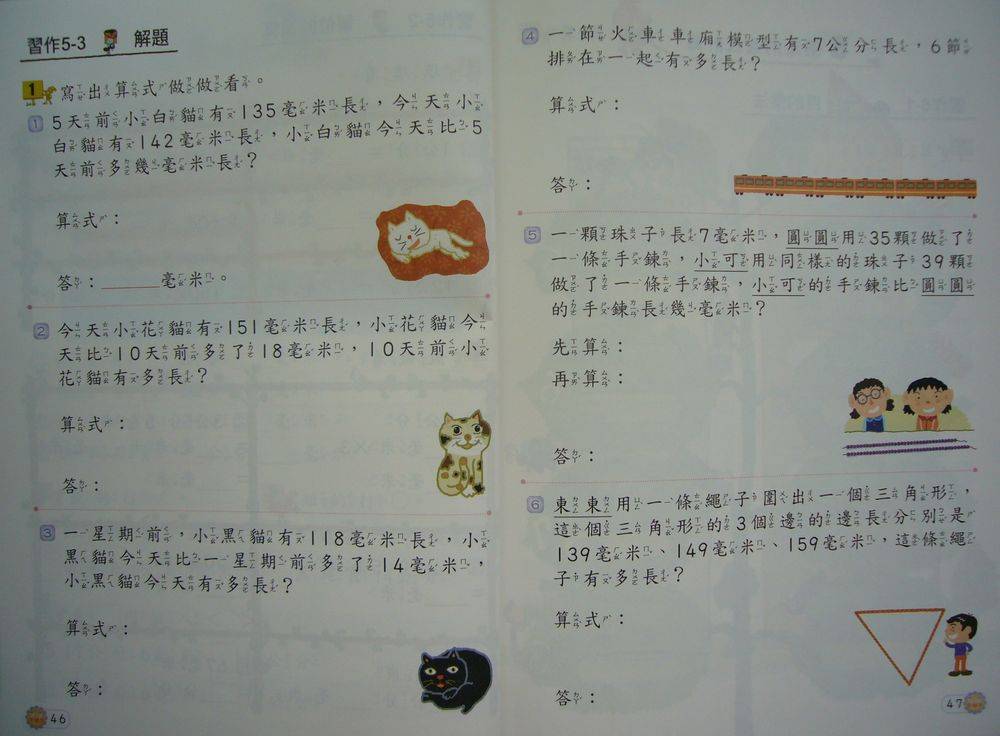 習作5-3 解題
1 寫出算式做做看。
1 5天前小白貓有135毫米長，今天小
白貓有142毫米長，小白貓今天比5
天前多幾毫米長？
算式：
答：______毫米。
2 今天小花貓有151毫米長，小花貓今
天比10天前多了18毫米，10天前小
花貓有多長？
算式：
答：
3 一星期前，小黑貓有118毫米長，小
黑貓今天比一星期前多了14毫米，
小黑貓今天有多長？
算式：
答：
46
4 一節火車車廂模型有7公分長，6節
排在一起有多長？
算式：
答：
5 一顆珠子長7毫米，圓圓用35顆做了
一條手鍊，小可用同樣的珠子39顆
做了一條手鍊，小可的手鍊比圓圓
的手鍊長幾毫米？
先算：
再算：
答：
6 東東用一條繩子圍出一個三角形，
這個三角形的3個邊的邊長分別是
139毫米、149毫米、159毫米，這條繩
子有多長？
算式：
答：
47